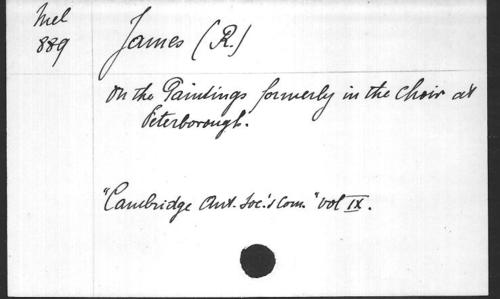 Mel
889
James (R.)
On the Paintings formerly in the Choir at
Peterborough.
"Cambridge Ant. Soc.'s Com." Vol IX.